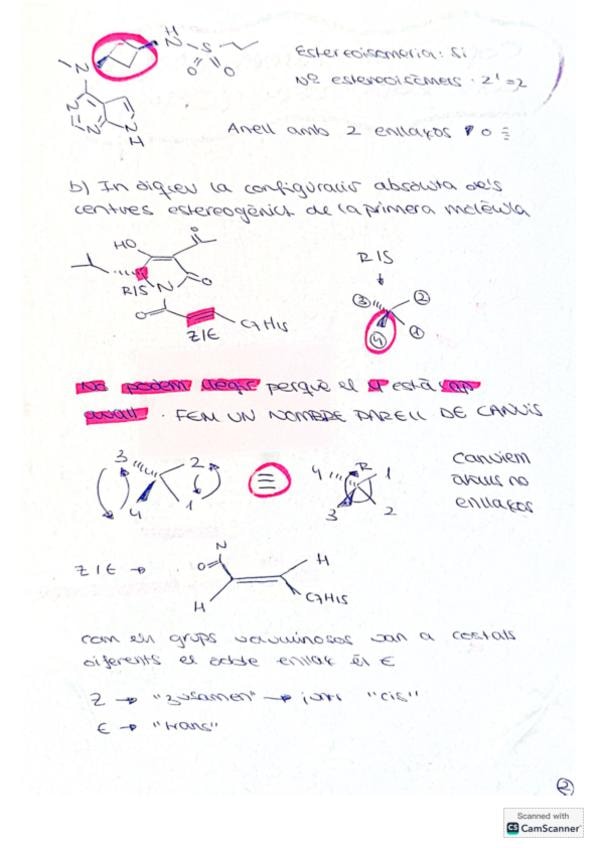 H
N
S
O O
N
N
N
N
N
H
Estereoisomeria: Si
Nº estereoisòmers: 2¹=2
Anell amb 2 enllaços
b) Indiqueu la configuració absoluta dels
centres estereogènics de la primera molècula
HO
O
O
N
R/S
O
C7H15
Z/E
R/S
3 2
4 1
No podem llegir perquè el 4 està cap
avall. FEM UN NOMBRE PARELL DE CANVIS
3 2
4 1
≡
4 R 1
3 2
Canviem
àtoms no
enllaços
Z/E →
N
O
H
H
C7H15
com els grups voluminosos van a costats
diferents el doble enllaç és E
Z → "zusamen" → junt "cis"
E → "trans"
2
Scanned with
CS CamScanner